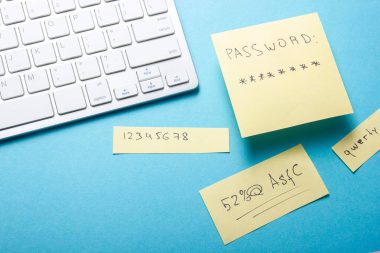 PASSWORD:
********
12345678
52%@ AsfC
qwerty